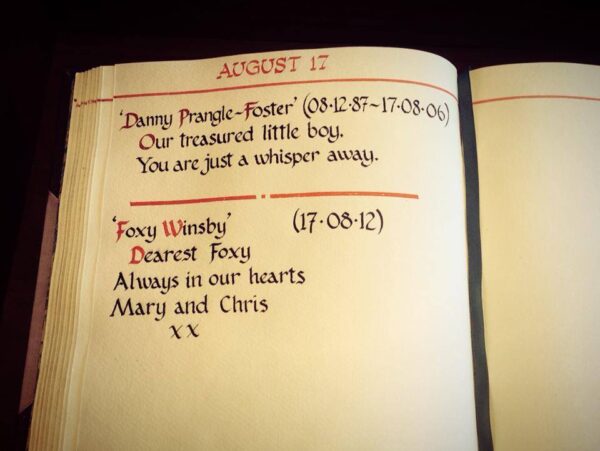 AUGUST 17
'Danny Prangle~Foster' (08·12·87~17·08·06)
Our treasured little boy.
You are just a whisper away.
'Foxy Winsby' (17·08·12)
Dearest Foxy
Always in our hearts
Mary and Chris
xx